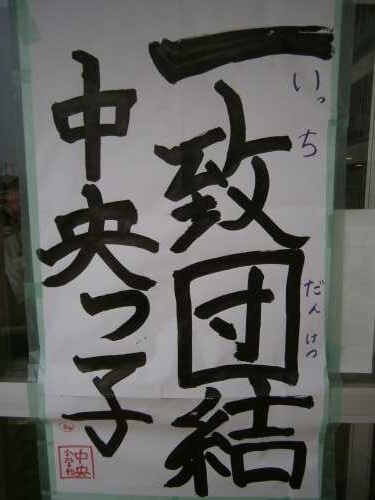 一致団結
いっち
だんけつ
中央っ子
中央
小学校